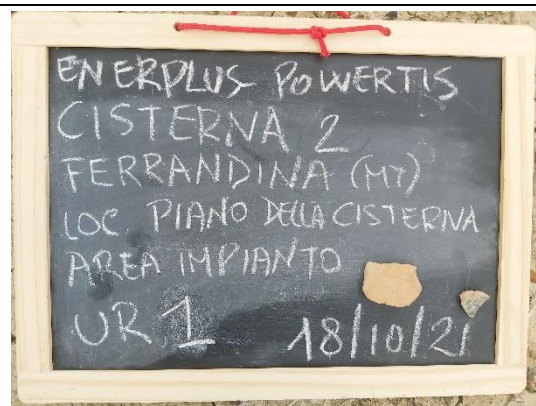 ENERPLUS POWERTIS
CISTERNA 2
FERRANDINA (MT)
LOC PIANO DELLA CISTERNA
AREA IMPIANTO
UR 1 18/10/21